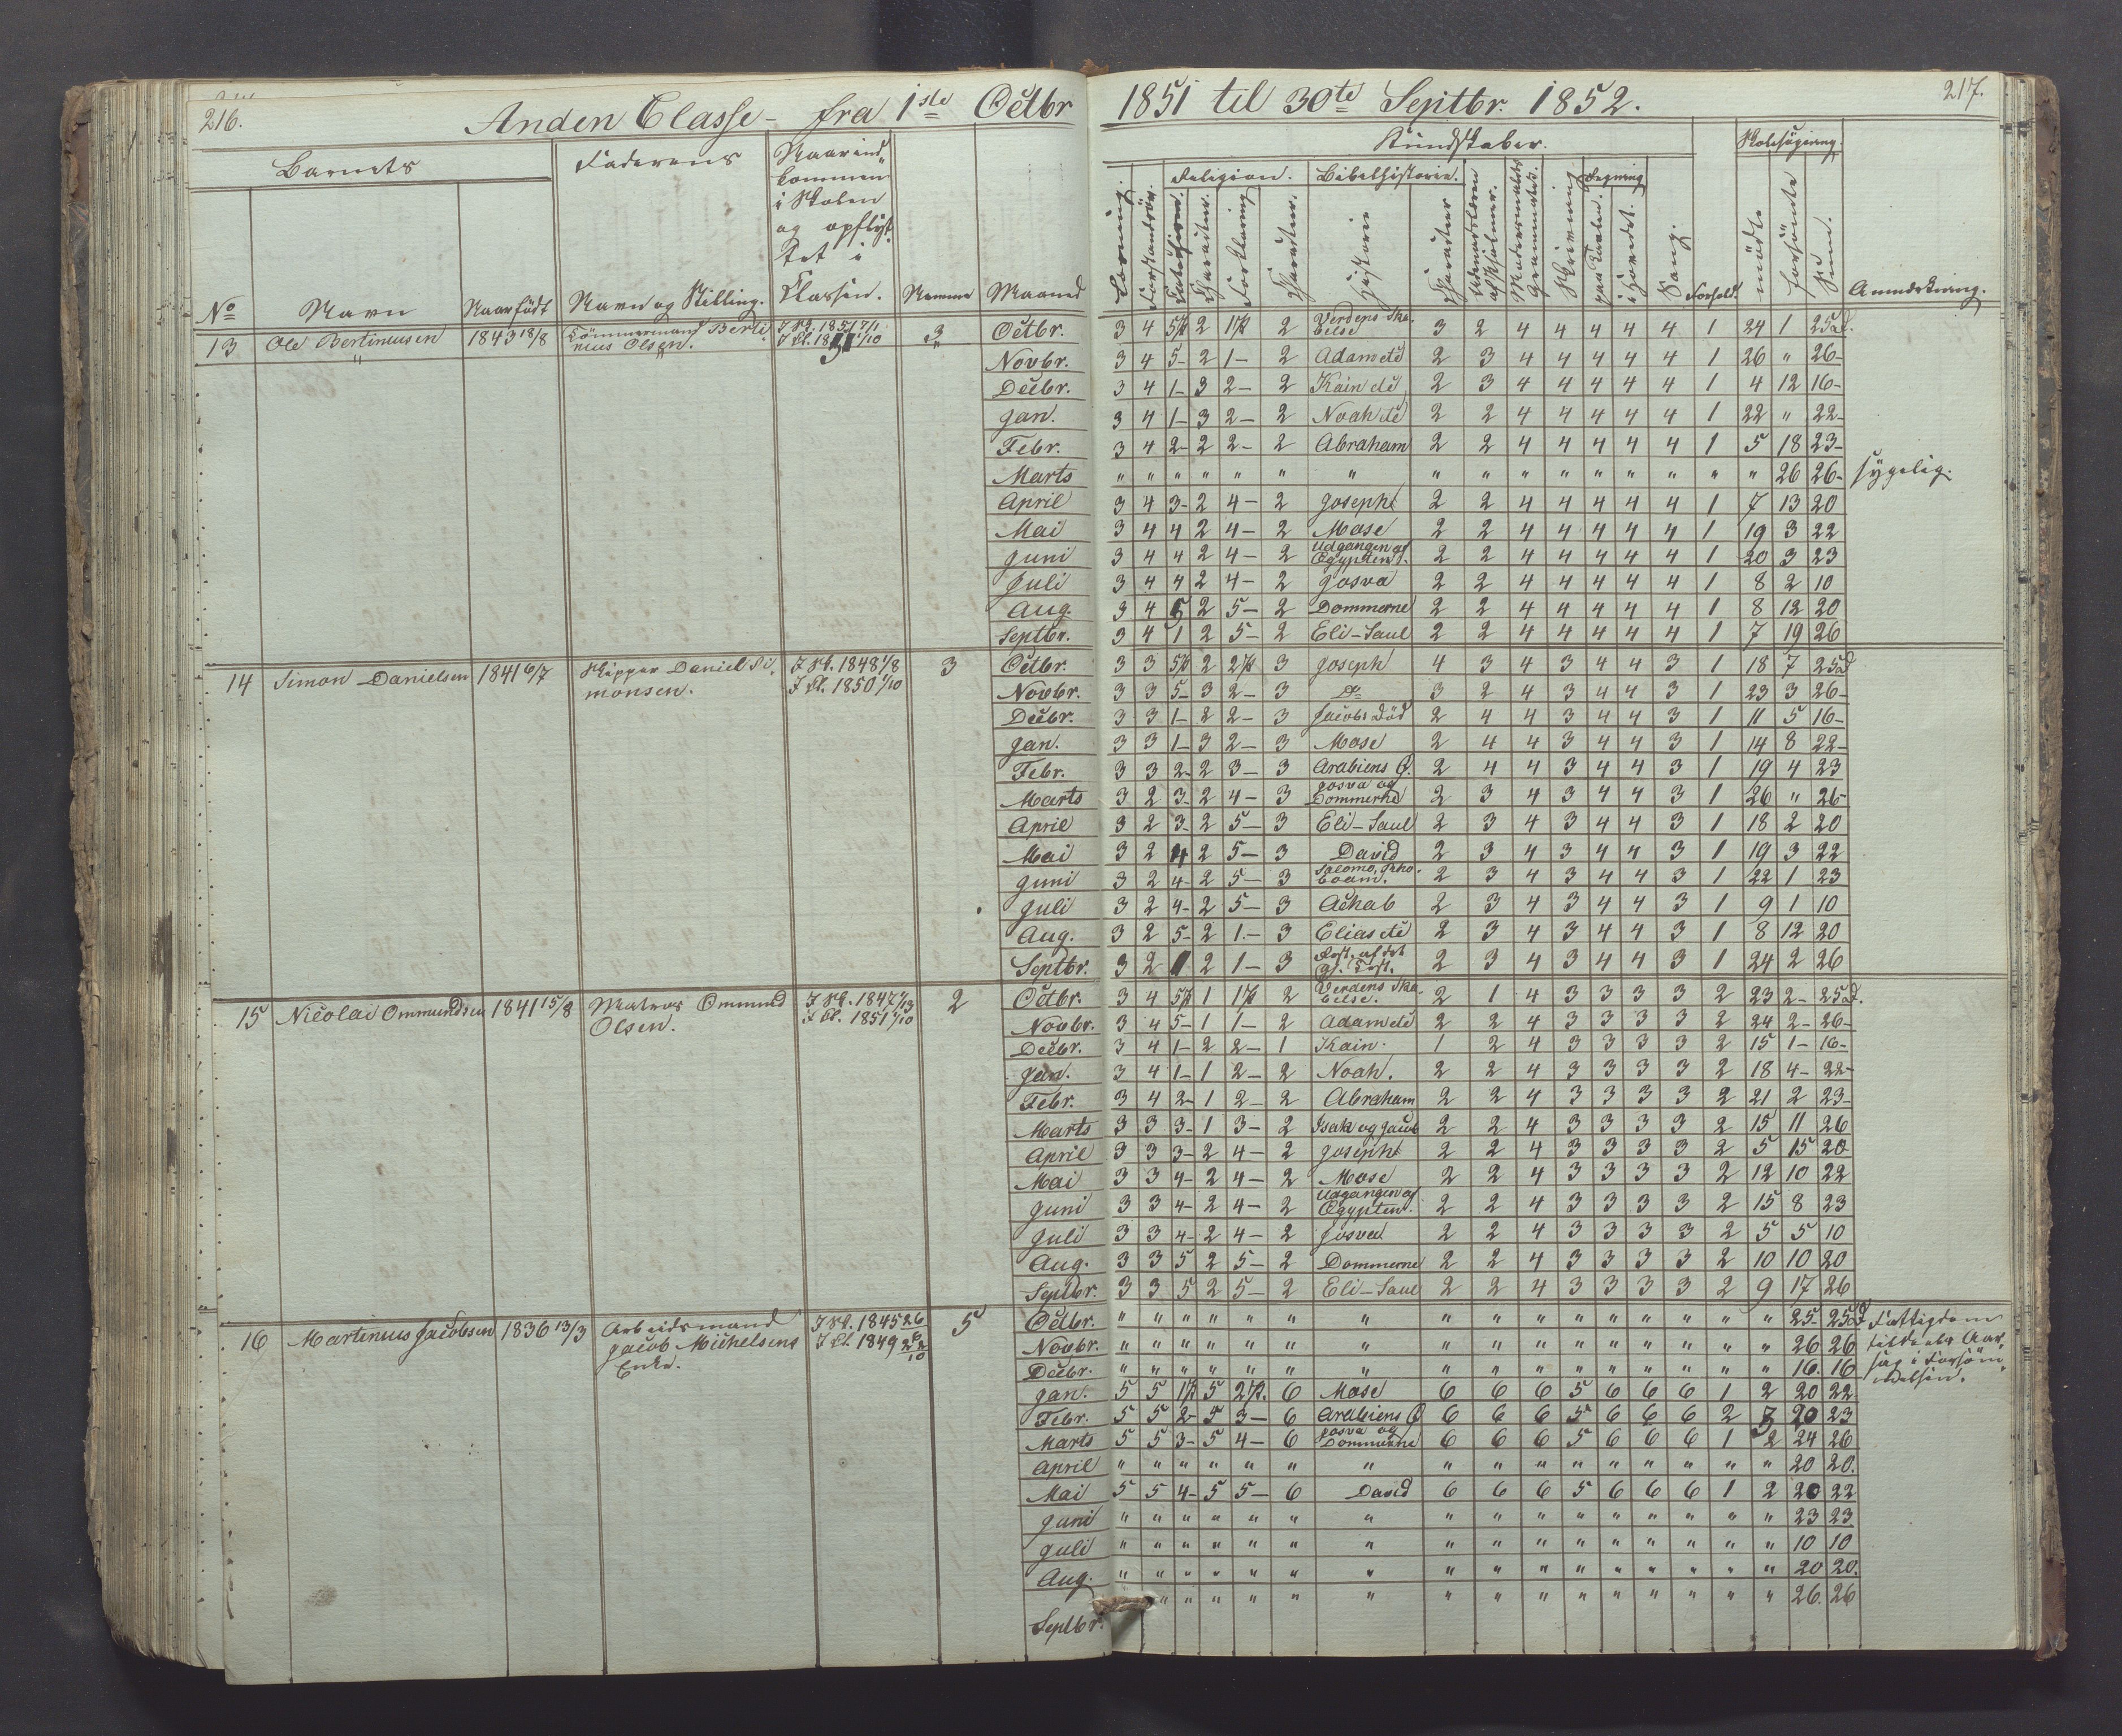 216.
Anden Classe - fra 1ste Octbr
1851 til 30te Septbr. 1852.
217.
Barnets
Faderens
Naar ind-
kommen
i Skolen
og opflyt-
tet i
Klassen.
Kundskaber.
Skolesøgning.
Religion.
Bibelhistorie.
Regning
No
Navn
Naar født
Navn og Stilling.
Numer
Maaned
Forstandsøv.
Charakter.
Forklaring
Charakter.
Historie
Charakter
Modersmaalets Grammatik.
Skrivning
paa Tavlen.
i Hovedet.
Sang.
Forhold.
mødte
forsømte
Sum.
Anmærkning.
13 Ole Bertineusen 1843 18/8 Tømmermand Berti- I Sk. 1851 7/1 3 Octbr. 3 4 5 2 1 2 Verdens Ska- 3 2 4 4 4 4 4 1 24 1 25 d.
neus Olsen. I Cl. 1851 1/10 belse
Novbr. 3 4 5- 2 1- 2 Adam etc 2 3 4 4 4 4 4 1 26 " 26-
Decbr. 3 4 1- 3 2- 2 Kain etc 2 3 4 4 4 4 4 1 4 12 16-
Jan. 3 4 1- 3 2- 2 Noah etc 2 2 4 4 4 4 4 1 22 " 22-
Febr. 3 4 2- 2 2- 2 Abraham 2 2 4 4 4 4 4 1 5 18 23-
Marts " " " " " " " " " " " " " " " " 26 26- sygelig.
April 3 4 3- 2 4- 2 Joseph 2 2 4 4 4 4 4 1 7 13 20
Mai 3 4 4 2 4- 2 Mose 2 2 4 4 4 4 4 1 19 3 22
Juni 3 4 4 2 4- 2 Udgangen af Egypten 2 2 4 4 4 4 4 1 20 3 23
Juli 3 4 4 2 4- 2 Josva 2 2 4 4 4 4 4 1 8 2 10
Aug. 3 4 5 2 5- 2 Dommerne 2 2 4 4 4 4 4 1 8 12 20
Septbr. 3 4 1 2 5- 2 Eli-Saul 2 2 4 4 4 4 4 1 7 19 26
14 Simon Danielsen 1841 6/7 Skipper Daniel Si- I Sk. 1848 1/8 3 Octbr. 3 3 5 2 2 3 Joseph 4 3 4 3 4 4 3 1 18 7 25 d
monsen. I Cl. 1850 1/10
Novbr. 3 3 5- 3 2- 3 Do 3 2 4 3 4 4 3 1 23 3 26-
Decbr. 3 3 1- 2 2- 3 Jacobs Død 2 4 4 3 4 4 3 1 11 5 16-
Jan. 3 3 1- 3 2- 3 Mose 2 4 4 3 4 4 3 1 14 8 22-
Febr. 3 3 2- 2 3- 3 Arabiens Ø. 2 4 4 3 4 4 3 1 19 4 23
Marts 3 2 3- 2 4- 3 Josva og Dommerne 2 3 4 3 4 4 3 1 26 " 26-
April 3 2 3- 2 5- 3 Eli-Saul 2 3 4 3 4 4 3 1 18 2 20
Mai 3 2 4 2 5- 3 David 2 3 4 3 4 4 3 1 19 3 22
Juni 3 2 4- 2 5- 3 Salomo, Reho- boam. 2 3 4 3 4 4 3 1 22 1 23
Juli 3 2 4- 2 5- 3 Achab 2 3 4 3 4 4 3 1 9 1 10
Aug. 3 2 5- 2 1- 3 Elias etc 2 3 4 3 4 4 3 1 8 12 20
Septbr. 3 2 1 2 1- 3 Rest. af det 2 3 4 3 4 4 3 1 24 2 26
15 Nicolai Ommundsen 1841 15/8 Matros Ommund I Sk. 1847 2 Octbr. 3 4 5 1 1 2 Verdens Ska- belse. 2 1 4 3 3 3 3 2 23 2- 25 d.
Olsen. I Cl. 1851 1/10
Novbr. 3 4 5- 1 1- 2 Adam etc 2 2 4 3 3 3 3 2 24 2- 26-
Decbr. 3 4 1- 2 2- 1 Kain. 1 2 4 3 3 3 3 2 15 1- 16-
Jan. 3 4 1- 1 2- 2 Noah. 2 2 4 3 3 3 3 2 18 4- 22-
Febr. 3 4 2- 1 2- 2 Abraham 2 2 4 3 3 3 3 2 21 2 23-
Marts 3 3 3- 1 3- 2 Isak og Jacob 2 2 4 3 3 3 3 2 15 11 26
April 3 3 3- 2 4- 2 Joseph 2 2 4 3 3 3 3 2 5 15 20
Mai 3 3 4- 2 4- 2 Mose 2 2 4 3 3 3 3 2 12 10 22
Juni 3 3 4- 2 4- 2 Udgangen af Egypten. 2 2 4 3 3 3 3 2 15 8 23
Juli 3 3 4- 2 4- 2 Josva 2 2 4 3 3 3 3 2 5 5 10
Aug. 3 3 5 2 5- 2 Dommerne 2 2 4 3 3 3 3 2 10 10 20
Septbr. 3 3 5 2 5- 2 Eli-Saul 2 2 4 3 3 3 3 2 9 17 26
16 Martinius Jacobsen 1836 13/3 Arbeidsmand I Sk. 1845 5 Octbr. " " " " " " " " " " " " " " " " 25- 25 d Fattigdom
Jacob Michelsens I Cl. 1849 Novbr. " " " " " " " " " " " " " " " " 26 26 tildeels Aar-
Enke. Decbr. " " " " " " " " " " " " " " " " 16. 16 sag i Forsøm-
Jan. 5 5 1 5 2 6 Mose 6 6 6 5 6 6 6 1 2 20 22 melsen.
Febr. 5 5 2- 5 3- 6 Arabiens Ø 6 6 6 5 6 6 6 2 3 20 23
Marts 5 5 3- 5 4- 6 Josva og Dommerne 6 6 6 5 6 6 6 1 2 24 26
April " " " " " " " " " " " " " " " " 20 20.
Mai 5 5 4- 5 5- 6 David 6 6 6 5 6 6 6 1 2 20 22
Juni " " " " " " " " " " " " " " " " 23 23
Juli " " " " " " " " " " " " " " " " 10 10
Aug. " " " " " " " " " " " " " " " " 20 20.
Septbr. " " " " " " " " " " " " " " 26. 26